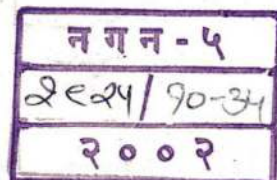 न ग न - ५
२९२५/१०-३५
२ ० ० २